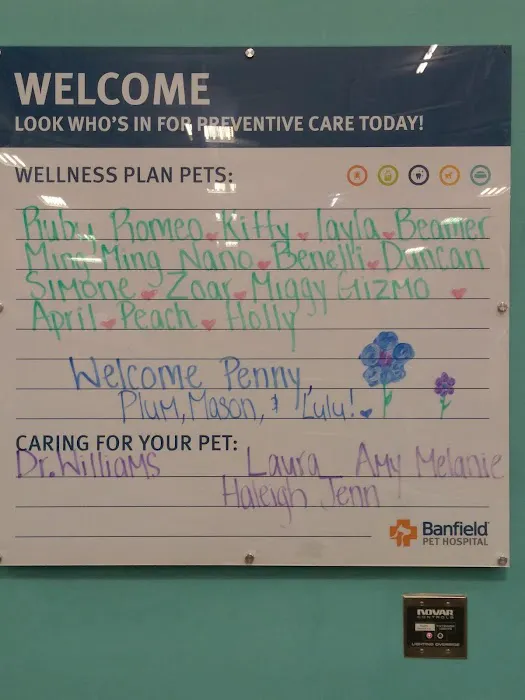 WELCOME
LOOK WHO'S IN FOR PREVENTIVE CARE TODAY!
WELLNESS PLAN PETS:
Ruby Romeo Kitty Layla Beamer
Ming Ming Nano Benelli Duncan
Simone Zoar Miggy Gizmo
April Peach Holly
Welcome Penny,
Plum, Mason, & Lulu!
CARING FOR YOUR PET:
Dr. Williams Laura Amy Melanie
Haleigh Jenn
Banfield
PET HOSPITAL
NOVAR
CONTROLS
LIGHTING OVERRIDE